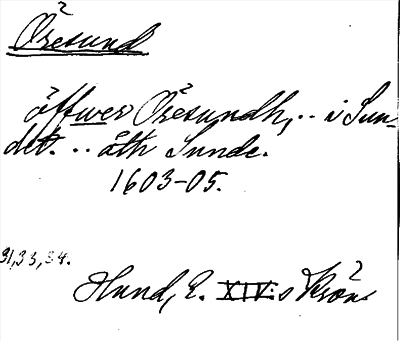 Öresund
öffwer Öresundh, .. i Sun-
det. .. åth Sunde.
1603-05.
31,33,34.
Hund, E. XIV:s Krön.